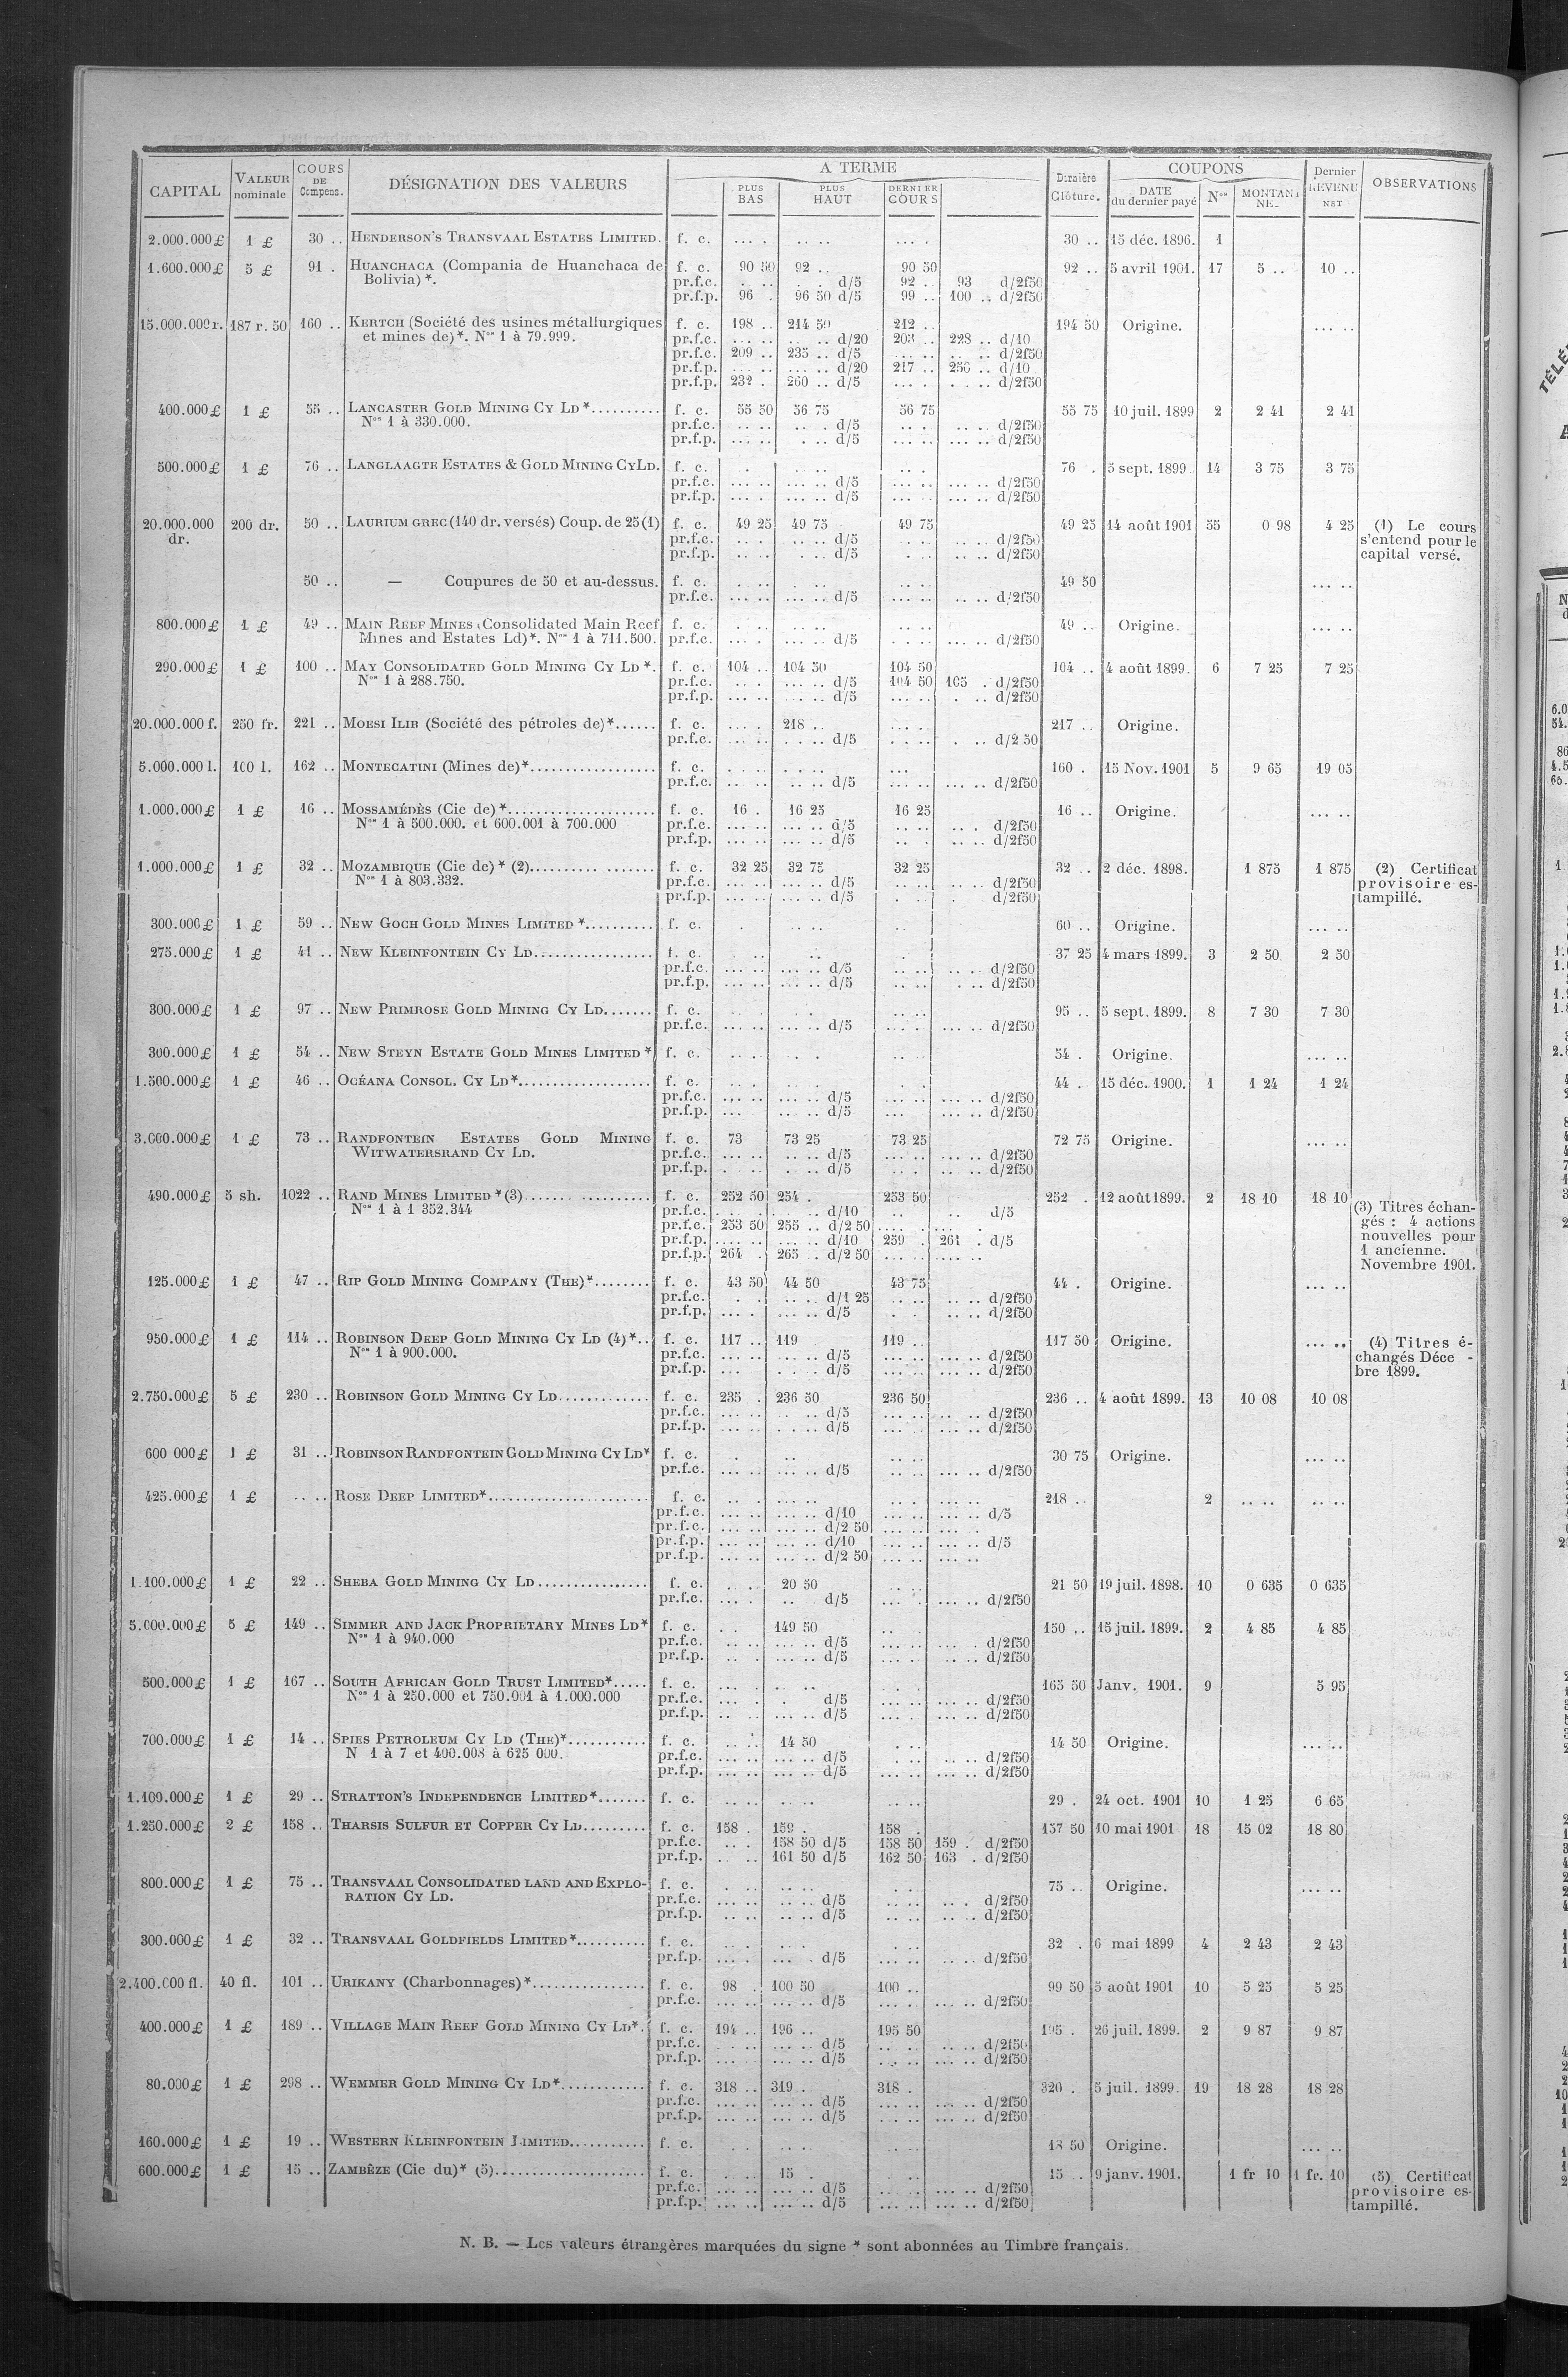 CAPITAL | VALEUR nominale | COURS DE Compens. | DÉSIGNATION DES VALEURS | A TERME | PLUS BAS | PLUS HAUT | DERNIER COURS | Dernière Clôture. | COUPONS | DATE du dernier payé | Nos | Dernier REVENU NET | OBSERVATIONS
2.000.000£ 1 £ 30 .. HENDERSON'S TRANSVAAL ESTATES LIMITED. f. c. ... . .. .. ... . 30 .. 15 déc. 1896. 1
1.600.000£ 5 £ 91 . HUANCHACA (Compania de Huanchaca de f. c. 90 50 92 .. 90 50 92 .. 5 avril 1901. 17 5 .. 10 ..
Bolivia)*. pr.f.c. d/5 92 .. 93 d/2f50
pr.f.p. 96 . 96 50 d/5 99 .. 100 .. d/2f50
15.000.000r. 187 r. 50 160 .. KERTCH (Société des usines métallurgiques f. c. 198 .. 214 50 212 .. 194 50 Origine. ... ..
et mines de)*. Nos 1 à 79.999. pr.f.c. d/20 203 .. 228 .. d/10
pr.f.c. 209 .. 235 .. d/5 d/2f50
pr.f.p. d/20 217 .. d/10
pr.f.p. 232 . 260 .. d/5 d/2f50
400.000£ 1 £ 55 .. LANCASTER GOLD MINING CY LD*.......... f. c. 55 50 56 75 56 75 55 75 10 juil. 1899 2 2 41 2 41
Nos 1 à 330.000. pr.f.c. d/5 d/2f50
pr.f.p. d/5 d/2f50
500.000£ 1 £ 76 .. LANGLAAGTE ESTATES & GOLD MINING CY LD. f. c. 76 . 5 sept. 1899 14 3 75 3 75
pr.f.c. d/5 d/2f50
pr.f.p. d/5 d/2f50
20.000.000 200 dr. 50 .. LAURIUM GREC (140 dr. versés) Coup. de 25 (1) f. c. 49 25 49 75 49 75 49 25 14 août 1901 55 0 98 4 25 (1) Le cours
dr. pr.f.c. d/5 d/2f50 s'entend pour le
pr.f.p. d/5 d/2f50 capital versé.
50 .. — Coupures de 50 et au-dessus. f. c. 49 50 ... ..
pr.f.c. d/5 d/2f50
800.000£ 1 £ 49 .. MAIN REEF MINES (Consolidated Main Reef f. c. 49 .. Origine. ... ..
Mines and Estates Ld)*. Nos 1 à 711.500. pr.f.c. d/5 d/2f50
290.000£ 1 £ 100 .. MAY CONSOLIDATED GOLD MINING CY LD*. f. c. 104 .. 104 50 104 50 104 .. 4 août 1899. 6 7 25 7 25
Nos 1 à 288.750. pr.f.c. d/5 104 50 105 . d/2f50
pr.f.p. d/5 d/2f50
20.000.000 f. 250 fr. 221 .. MOESI ILIR (Société des pétroles de)*...... f. c. 218 .. 217 .. Origine.
pr.f.c. d/5 d/2 50
5.000.000 l. 100 l. 162 .. MONTECATINI (Mines de)*................. f. c. 160 . 15 Nov. 1901 5 9 65 19 05
pr.f.c. d/5 d/2f50
1.000.000£ 1 £ 16 .. MOSSAMÉDÈS (Cie de)*.................... f. c. 16 . 16 25 16 25 16 .. Origine. ... ..
Nos 1 à 500.000. et 600.001 à 700.000 pr.f.c. d/5 d/2f50
pr.f.p. d/5 d/2f50
1.000.000£ 1 £ 32 .. MOZAMBIQUE (Cie de)* (2)................ f. c. 32 25 32 75 32 25 32 .. 2 déc. 1898. 1 875 1 875 (2) Certificat
Nos 1 à 803.332. pr.f.c. d/5 d/2f50 provisoire es-
pr.f.p. d/5 d/2f50 tampillé.
300.000£ 1 £ 59 .. NEW GOCH GOLD MINES LIMITED*.......... f. c. 60 .. Origine. ... ..
275.000£ 1 £ 41 .. NEW KLEINFONTEIN CY LD................ f. c. 37 25 4 mars 1899. 3 2 50 2 50
pr.f.c. d/5 d/2f50
pr.f.p. d/5 d/2f50
300.000£ 1 £ 97 .. NEW PRIMROSE GOLD MINING CY LD....... f. c. 95 .. 5 sept. 1899. 8 7 30 7 30
pr.f.c. d/5 d/2f50
300.000£ 1 £ 54 .. NEW STEYN ESTATE GOLD MINES LIMITED* f. c. 54 . Origine. ... ..
1.500.000£ 1 £ 46 .. OCÉANA CONSOL. CY LD*................... f. c. 44 . 15 déc. 1900. 1 1 24 1 24
pr.f.c. d/5 d/2f50
pr.f.p. d/5 d/2f50
3.000.000£ 1 £ 73 .. RANDFONTEIN ESTATES GOLD MINING f. c. 73 73 25 73 25 72 75 Origine. ... ..
WITWATERSRAND CY LD. pr.f.c. d/5 d/2f50
pr.f.p. d/5 d/2f50
490.000£ 5 sh. 1022 .. RAND MINES LIMITED*(3)................. f. c. 252 50 254 . 253 50 252 . 12 août 1899. 2 18 10 18 10
Nos 1 à 1 352.344 pr.f.c. d/10 d/5 (3) Titres échan-
pr.f.c. 253 50 255 .. d/2 50 gés : 4 actions
pr.f.p. d/10 259 . 261 . d/5 nouvelles pour
pr.f.p. 264 . 265 .. d/2 50 1 ancienne.
Novembre 1901.
125.000£ 1 £ 47 .. RIP GOLD MINING COMPANY (THE)*........ f. c. 43 50 44 50 43 75 44 . Origine. ... ..
pr.f.c. d/1 25 d/2f50
pr.f.p. d/5 d/2f50
950.000£ 1 £ 114 .. ROBINSON DEEP GOLD MINING CY LD (4)*.. f. c. 117 .. 119 119 .. 117 50 Origine. ... .. (4) Titres é-
Nos 1 à 900.000. pr.f.c. d/5 d/2f50 changés Déce -
pr.f.p. d/5 d/2f50 bre 1899.
2.750.000£ 5 £ 230 .. ROBINSON GOLD MINING CY LD............. f. c. 235 . 236 50 236 50 236 .. 4 août 1899. 13 10 08 10 08
pr.f.c. d/5 d/2f50
pr.f.p. d/5 d/2f50
600 000£ 1 £ 31 .. ROBINSON RANDFONTEIN GOLD MINING CY LD* f. c. 30 75 Origine. ... ..
pr.f.c. d/5 d/2f50
425.000£ 1 £ .. .. ROSE DEEP LIMITED*....................... f. c. 218 .. 2 .. .. .. ..
pr.f.c. d/10 d/5
pr.f.c. d/2 50
pr.f.p. d/10 d/5
pr.f.p. d/2 50
1.100.000£ 1 £ 22 .. SHEBA GOLD MINING CY LD................ f. c. 20 50 21 50 19 juil. 1898. 10 0 635 0 635
pr.f.c. d/5 d/2f50
5.000.000£ 5 £ 149 .. SIMMER AND JACK PROPRIETARY MINES LD* f. c. 149 50 150 .. 15 juil. 1899. 2 4 85 4 85
Nos 1 à 940.000 pr.f.c. d/5 d/2f50
pr.f.p. d/5 d/2f50
500.000£ 1 £ 167 .. SOUTH AFRICAN GOLD TRUST LIMITED*..... f. c. 165 50 Janv. 1901. 9 5 95
Nos 1 à 250.000 et 750.001 à 1.000.000 pr.f.c. d/5 d/2f50
pr.f.p. d/5 d/2f50
700.000£ 1 £ 14 .. SPIES PETROLEUM CY LD (THE)*........... f. c. 14 50 14 50 Origine. ... ..
N 1 à 7 et 400.008 à 625 000. pr.f.c. d/5 d/2f50
pr.f.p. d/5 d/2f50
1.109.000£ 1 £ 29 .. STRATTON'S INDEPENDENCE LIMITED*....... f. c. 29 . 24 oct. 1901 10 1 25 6 65
1.250.000£ 2 £ 158 .. THARSIS SULFUR ET COPPER CY LD......... f. c. 158 . 159 . 158 . 157 50 10 mai 1901 18 15 02 18 80
pr.f.c. 158 50 d/5 158 50 159 . d/2f50
pr.f.p. 161 50 d/5 162 50 163 . d/2f50
800.000£ 1 £ 75 .. TRANSVAAL CONSOLIDATED LAND AND EXPLO- f. c. 75 .. Origine. ... ..
RATION CY LD. pr.f.c. d/5 d/2f50
pr.f.p. d/5 d/2f50
300.000£ 1 £ 32 .. TRANSVAAL GOLDFIELDS LIMITED*.......... f. c. 32 . 6 mai 1899 4 2 43 2 43
pr.f.p. d/5 d/2f50
2.400.000 fl. 40 fl. 101 .. URIKANY (Charbonnages)*................ f. c. 98 . 100 50 100 .. 99 50 5 août 1901 10 5 25 5 25
pr.f.c. d/5 d/2f50
400.000£ 1 £ 189 .. VILLAGE MAIN REEF GOLD MINING CY LD*. f. c. 194 .. 196 .. 195 50 195 . 26 juil. 1899. 2 9 87 9 87
pr.f.c. d/5 d/2f50
pr.f.p. d/5 d/2f50
80.000£ 1 £ 298 .. WEMMER GOLD MINING CY LD*............ f. c. 318 .. 319 . 318 . 320 . 5 juil. 1899. 19 18 28 18 28
pr.f.c. d/5 d/2f50
pr.f.p. d/5 d/2f50
160.000£ 1 £ 19 .. WESTERN KLEINFONTEIN LIMITED........... f. c. 18 50 Origine. ... ..
600.000£ 1 £ 15 .. ZAMBÈZE (Cie du)* (5)..................... f. c. 15 . 15 . 9 janv. 1901. 1 fr 10 1 fr. 10 (5) Certificat
pr.f.c. d/5 d/2f50 provisoire es-
pr.f.p. d/5 d/2f50 tampillé.
N. B. — Les valeurs étrangères marquées du signe * sont abonnées au Timbre français.